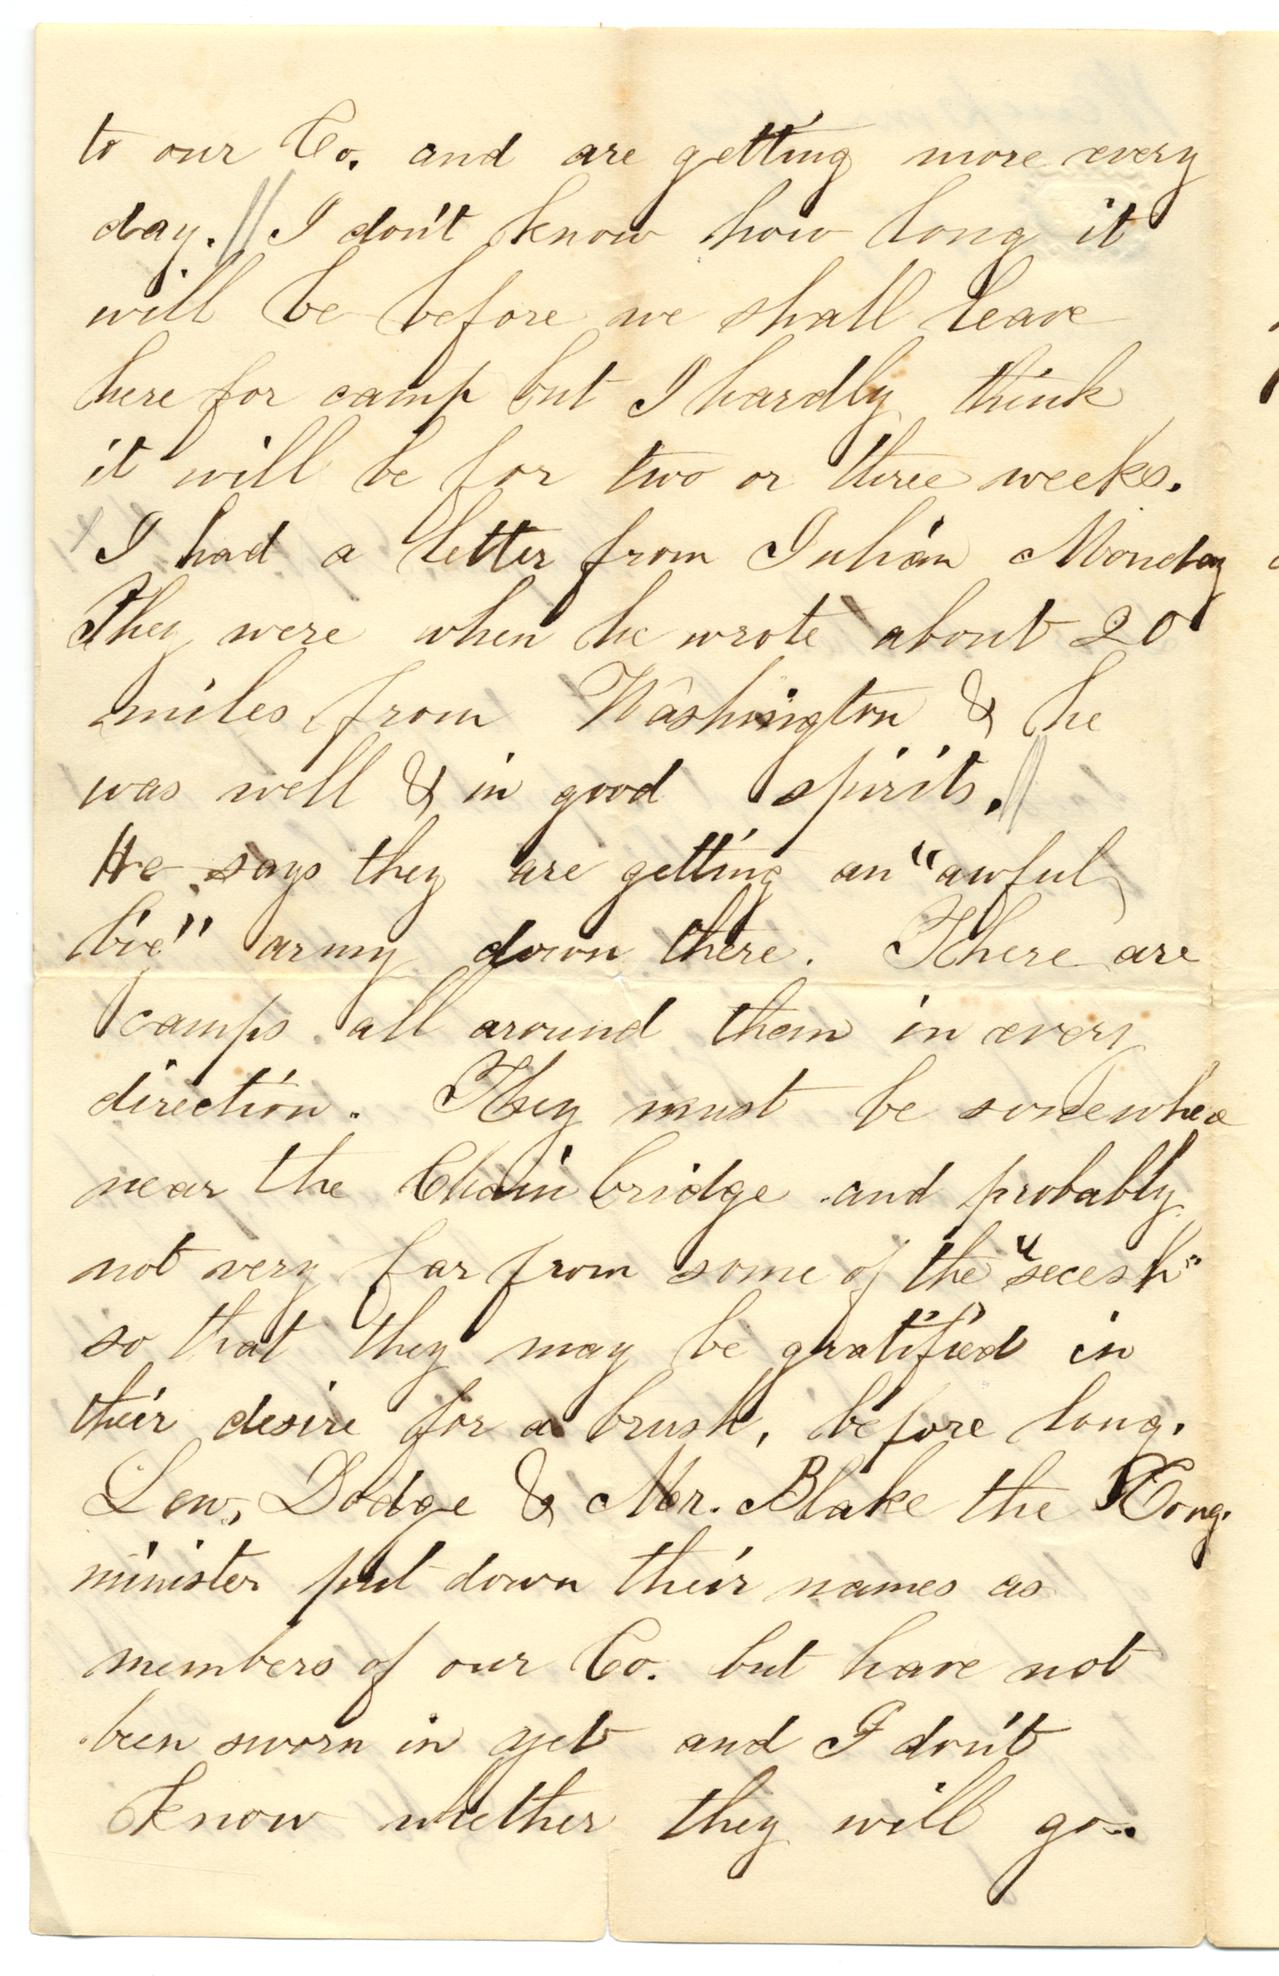 to our Co. and are getting more every
day. // I don't know how long it
will be before we shall leave
here for camp but I hardly think
it will be for two or three weeks.
I had a letter from Julian Monday
They were when he wrote about 20
miles from Washington & he
was well & in good spirits. //
He says they are getting an "awful
big" army down there. There are
camps all around them in every
direction. They must be somewhere
near the Chain bridge and probably
not very far from some of the "secesh"
so that they may be gratified in
their desire for a brush, before long.
Lew, Dodge & Mr. Blake the Cong.
minister put down their names as
members of our Co. but have not
been sworn in yet and I don't
know whether they will go.